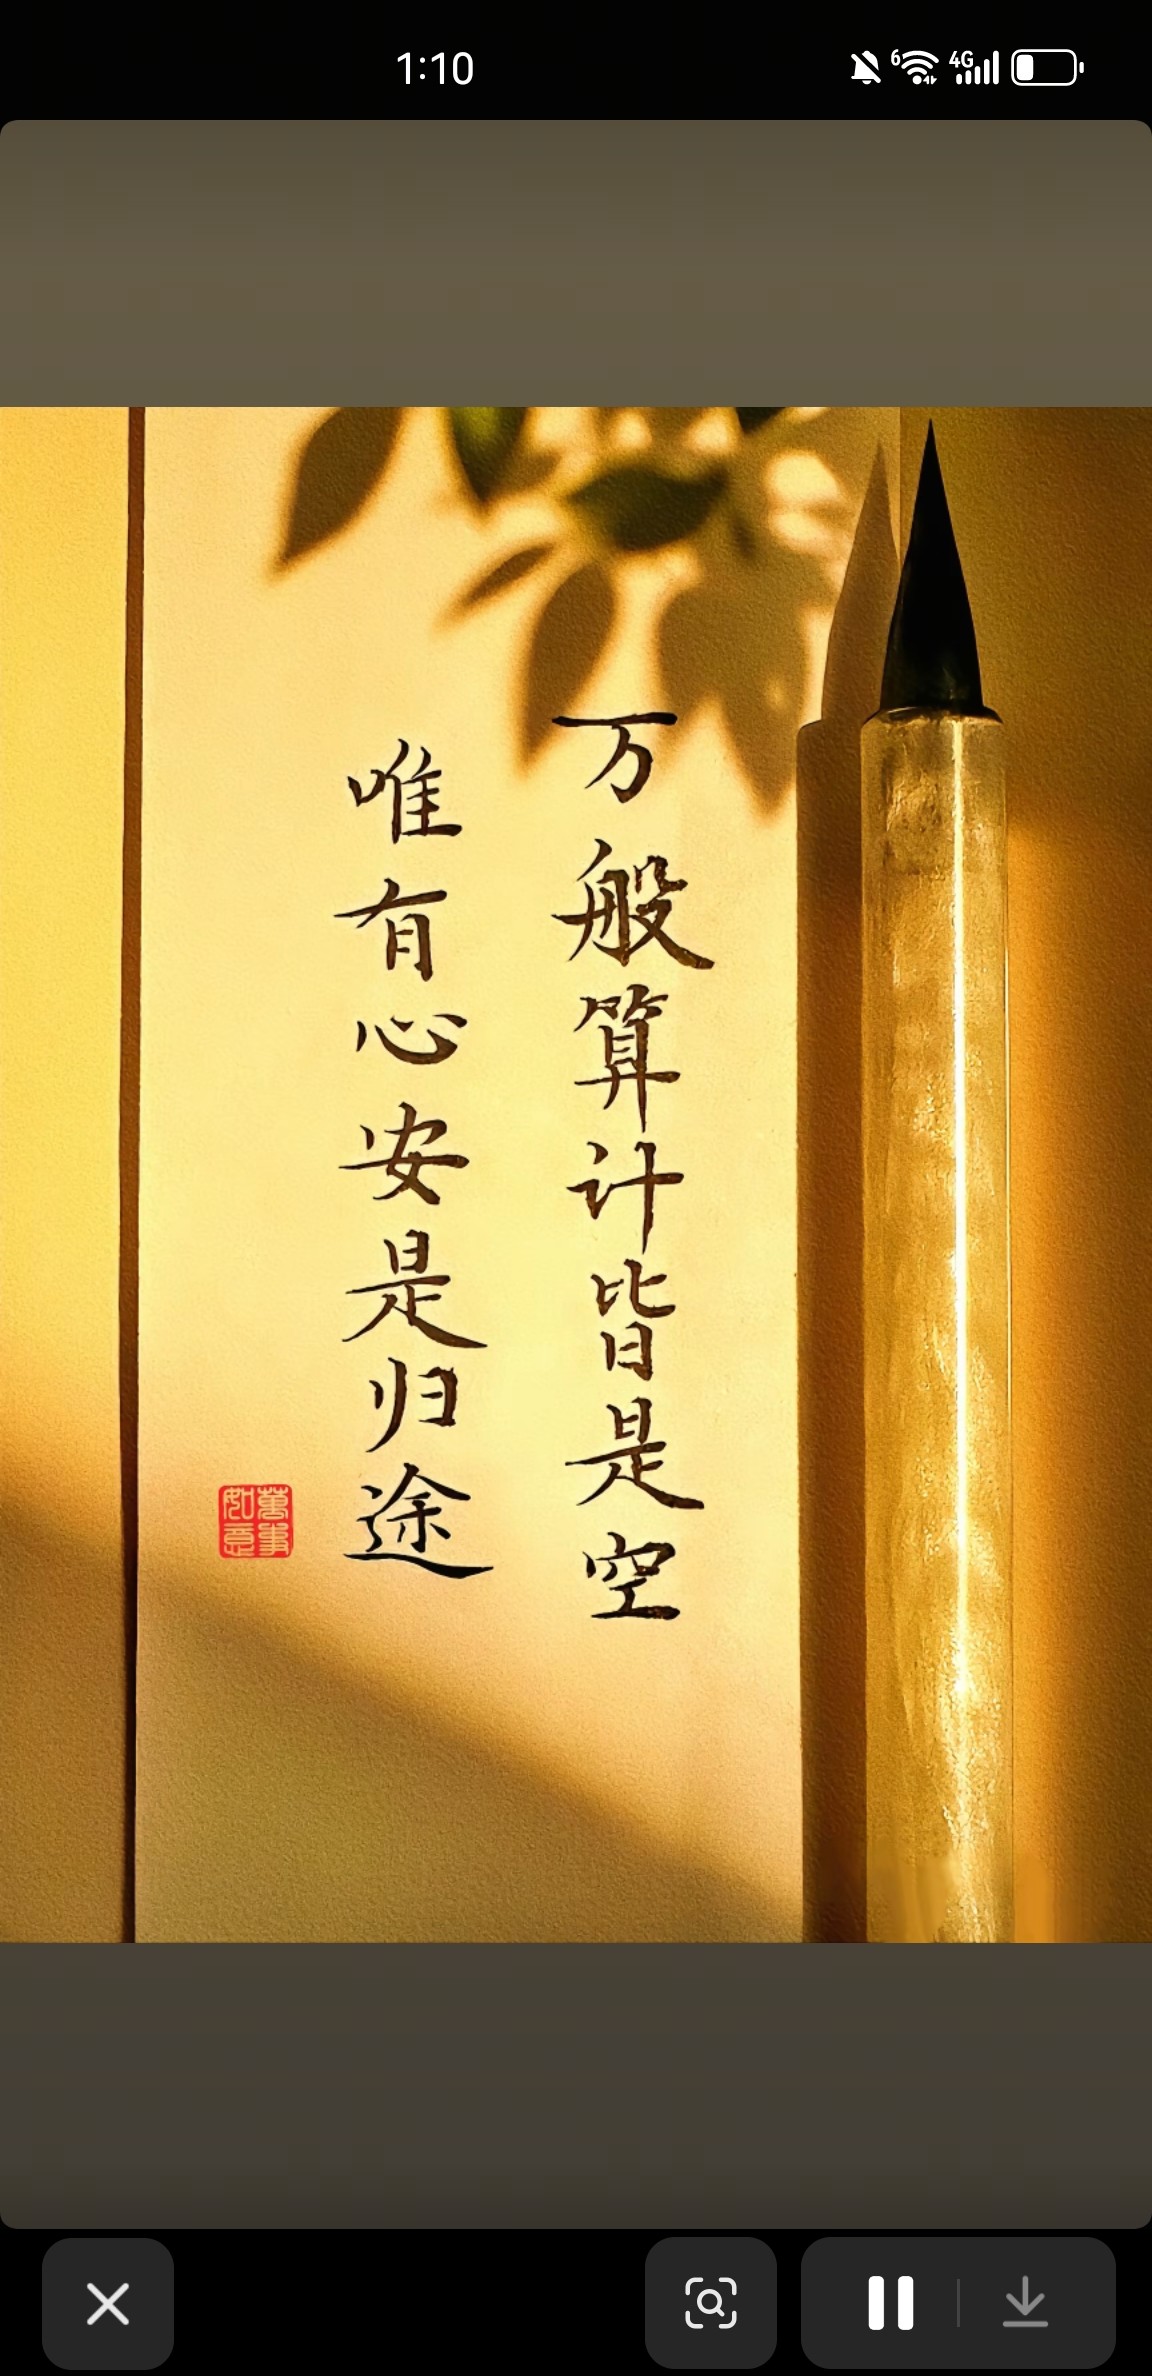 1:10
6
4G
万般算计皆是空
唯有心安是归途
萬事如意